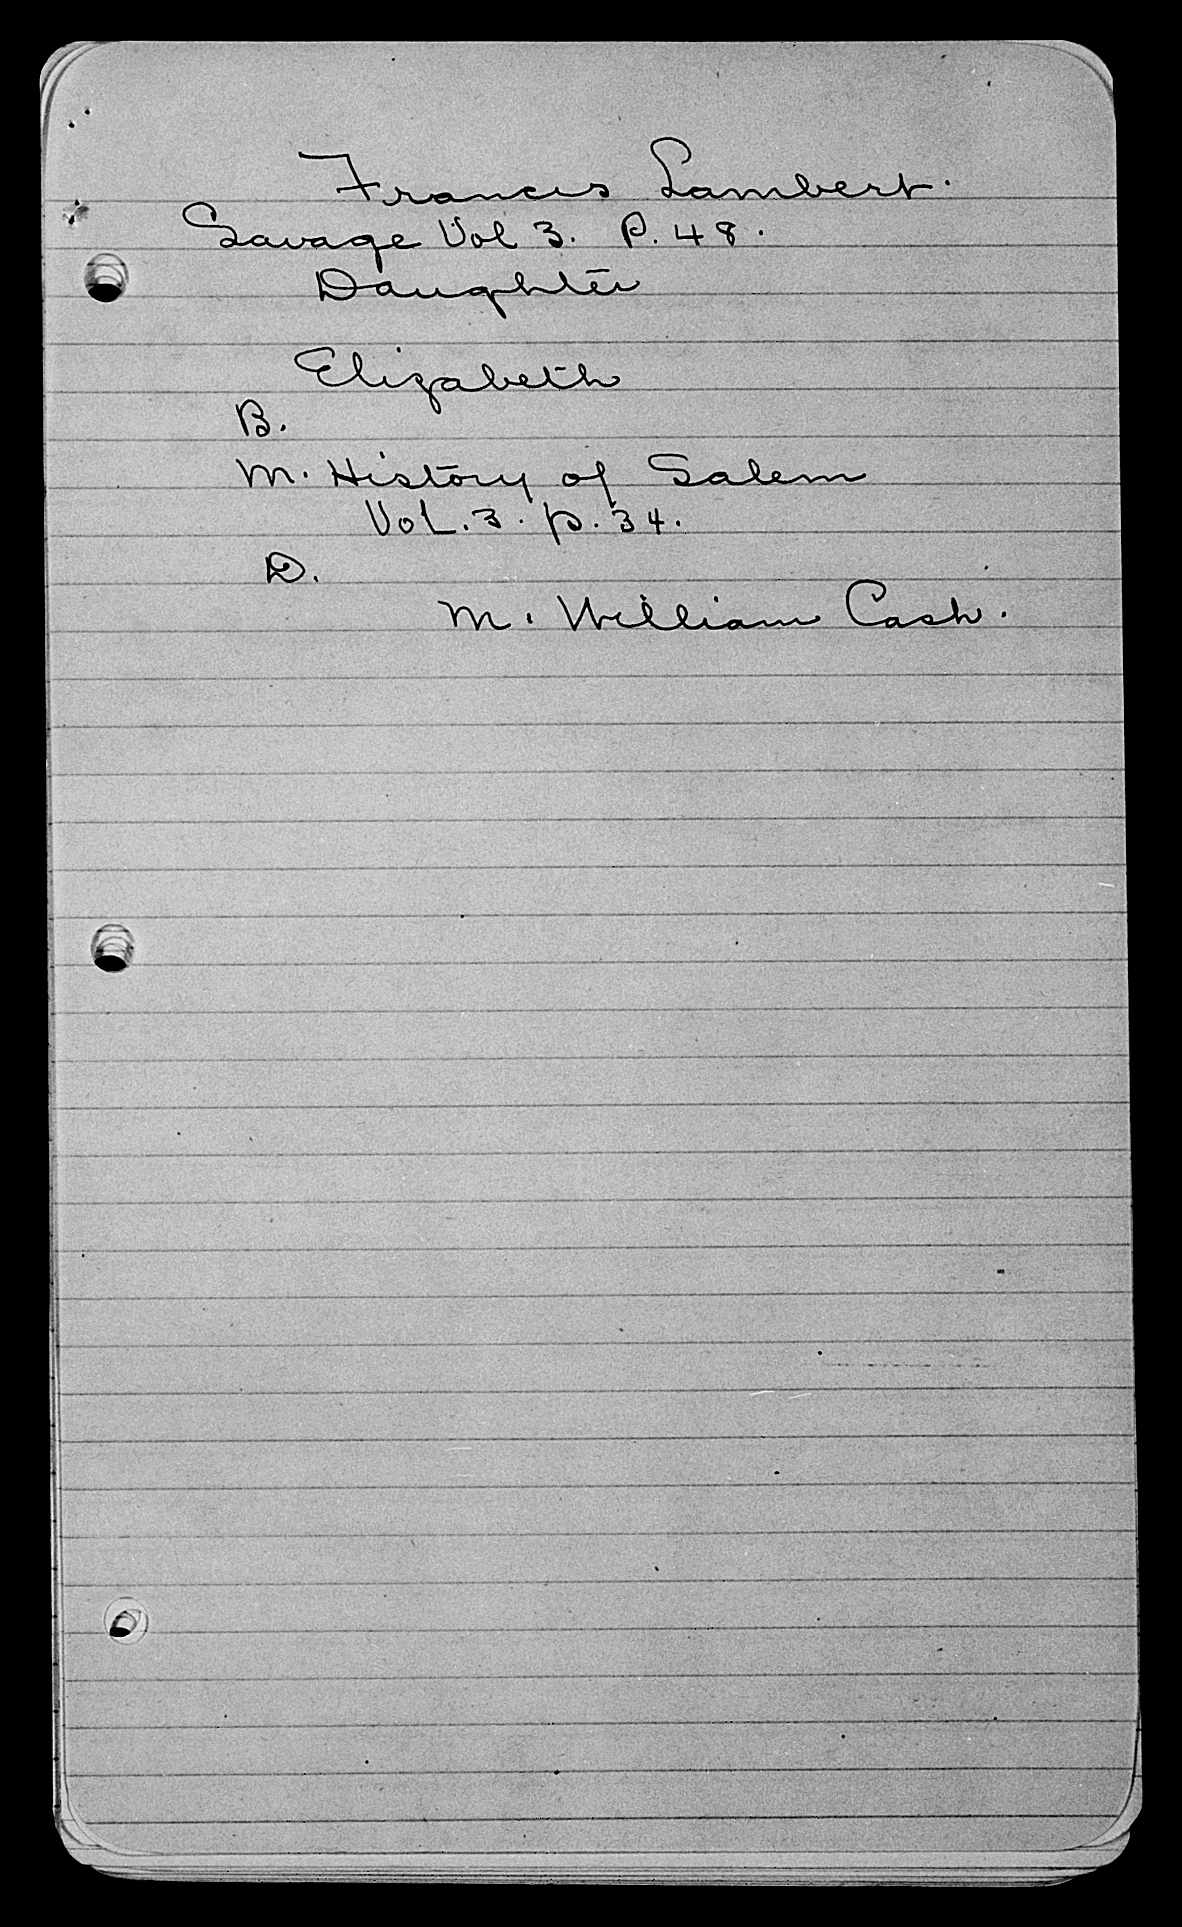 Francis Lambert.
Savage Vol 3. P. 48.
Daughter
Elizabeth
B.
M. History of Salem
Vol. 3. p. 34.
D.
M. William Cash.